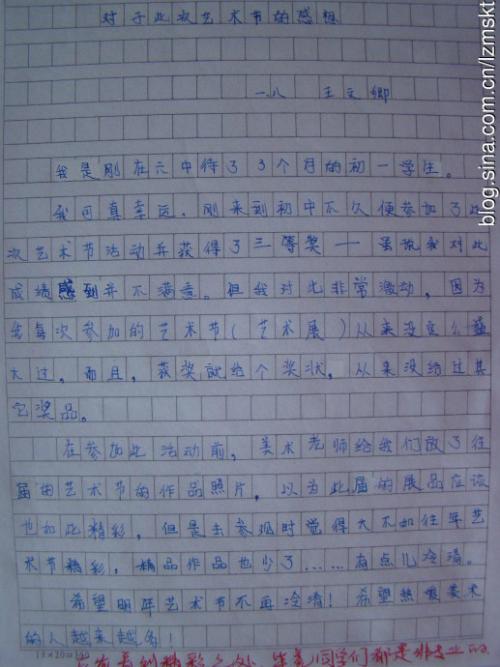 对于此次艺术节的感想
一.八 王文卿
我是刚在六中待了3个月的初一学生。
我可真幸运，刚来到初中不久便参加了此
次艺术节活动并获得了三等奖——虽说我对此
成绩感到并不满意。但我对此非常激动，因为
我每次参加的艺术节（艺术展）从来没这么盛
大过，而且，获奖就给个奖状，从来没给过其
它奖品。
在参加此活动前，美术老师给我们放了往
届的艺术节的作品照片，以为此届的展品应该
也如此精彩，但是去参观时觉得大不如往年艺
术节精彩，精品作品也少了……有点儿冷清。
希望明年艺术节不再冷清！希望热爱美术
的人越来越多！
15×20=300
同学们都是非专业的
blog.sina.com.cn/lzmskt